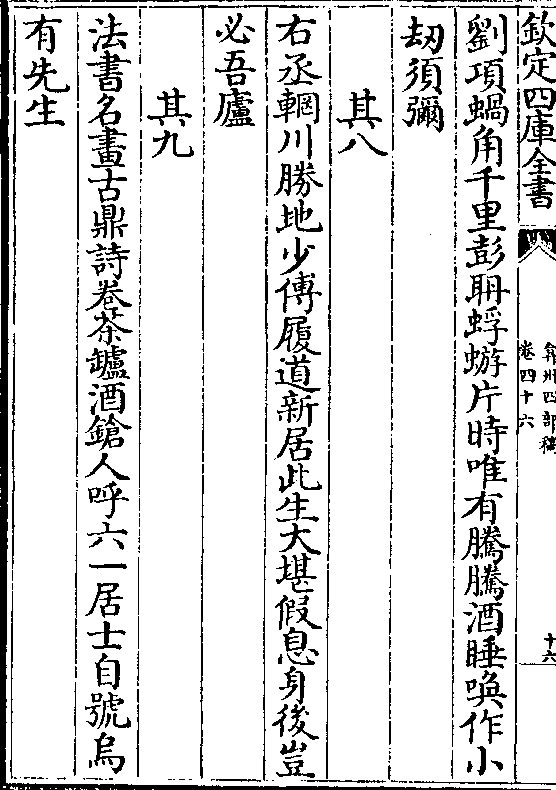 欽定四庫全書
弇州四部稿
卷四十六
十六
劉項蝸角千里彭聃蜉蝣片時唯有騰騰酒睡喚作小
劫須彌
其八
右丞輞川勝地少傅履道新居此生大堪假息身後豈
必吾廬
其九
法書名畫古鼎詩卷茶罏酒鎗人呼六一居士自號烏
有先生